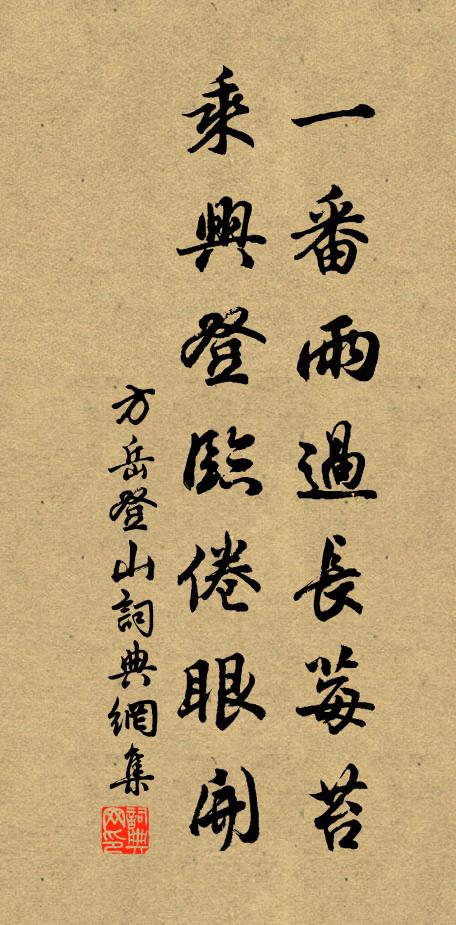 一番雨過長莓苔
乘興登臨倦眼開
方岳登山詞典網集
詞典網印